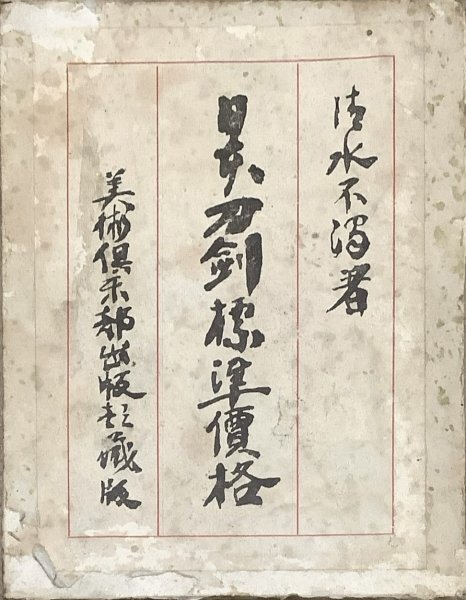 清水不濁著
日本刀劍標準價格
美術倶楽部出版部蔵版